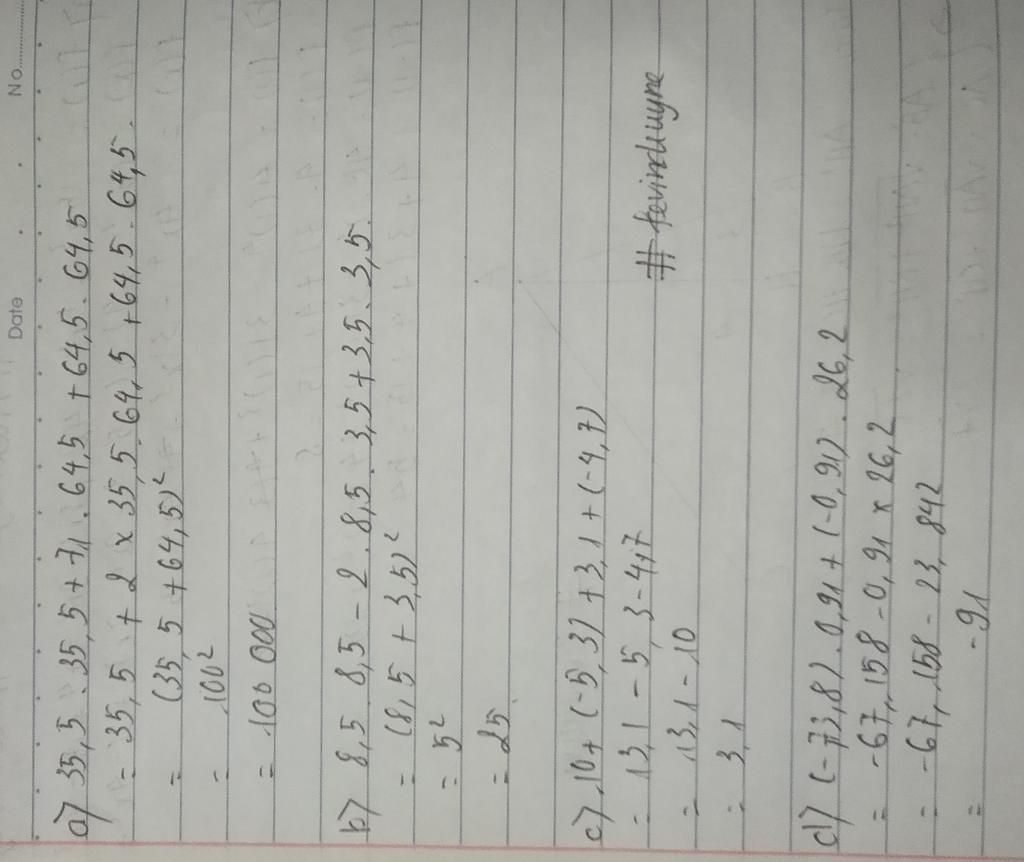 Date No
a) 35,5 . 35,5 + 71 . 64,5 + 64,5 . 64,5
= 35,5 + 2 x 35,5 . 64,5 + 64,5 . 64,5.
= (35,5 + 64,5)²
= 100²
= 100 000
b) 8,5 . 8,5 - 2 . 8,5 . 3,5 + 3,5 . 3,5.
= (8,5 + 3,5)²
= 5²
= 25
c) 10 + (-5,3) + 3,1 + (-4,7)
= 13,1 - 5,3 - 4,7
= 13,1 - 10
= 3,1
d) (-73,8) . 0,91 + (-0,91) . 26,2
= -67,158 - 0,91 x 26,2
= -67,158 - 23,842
= -91